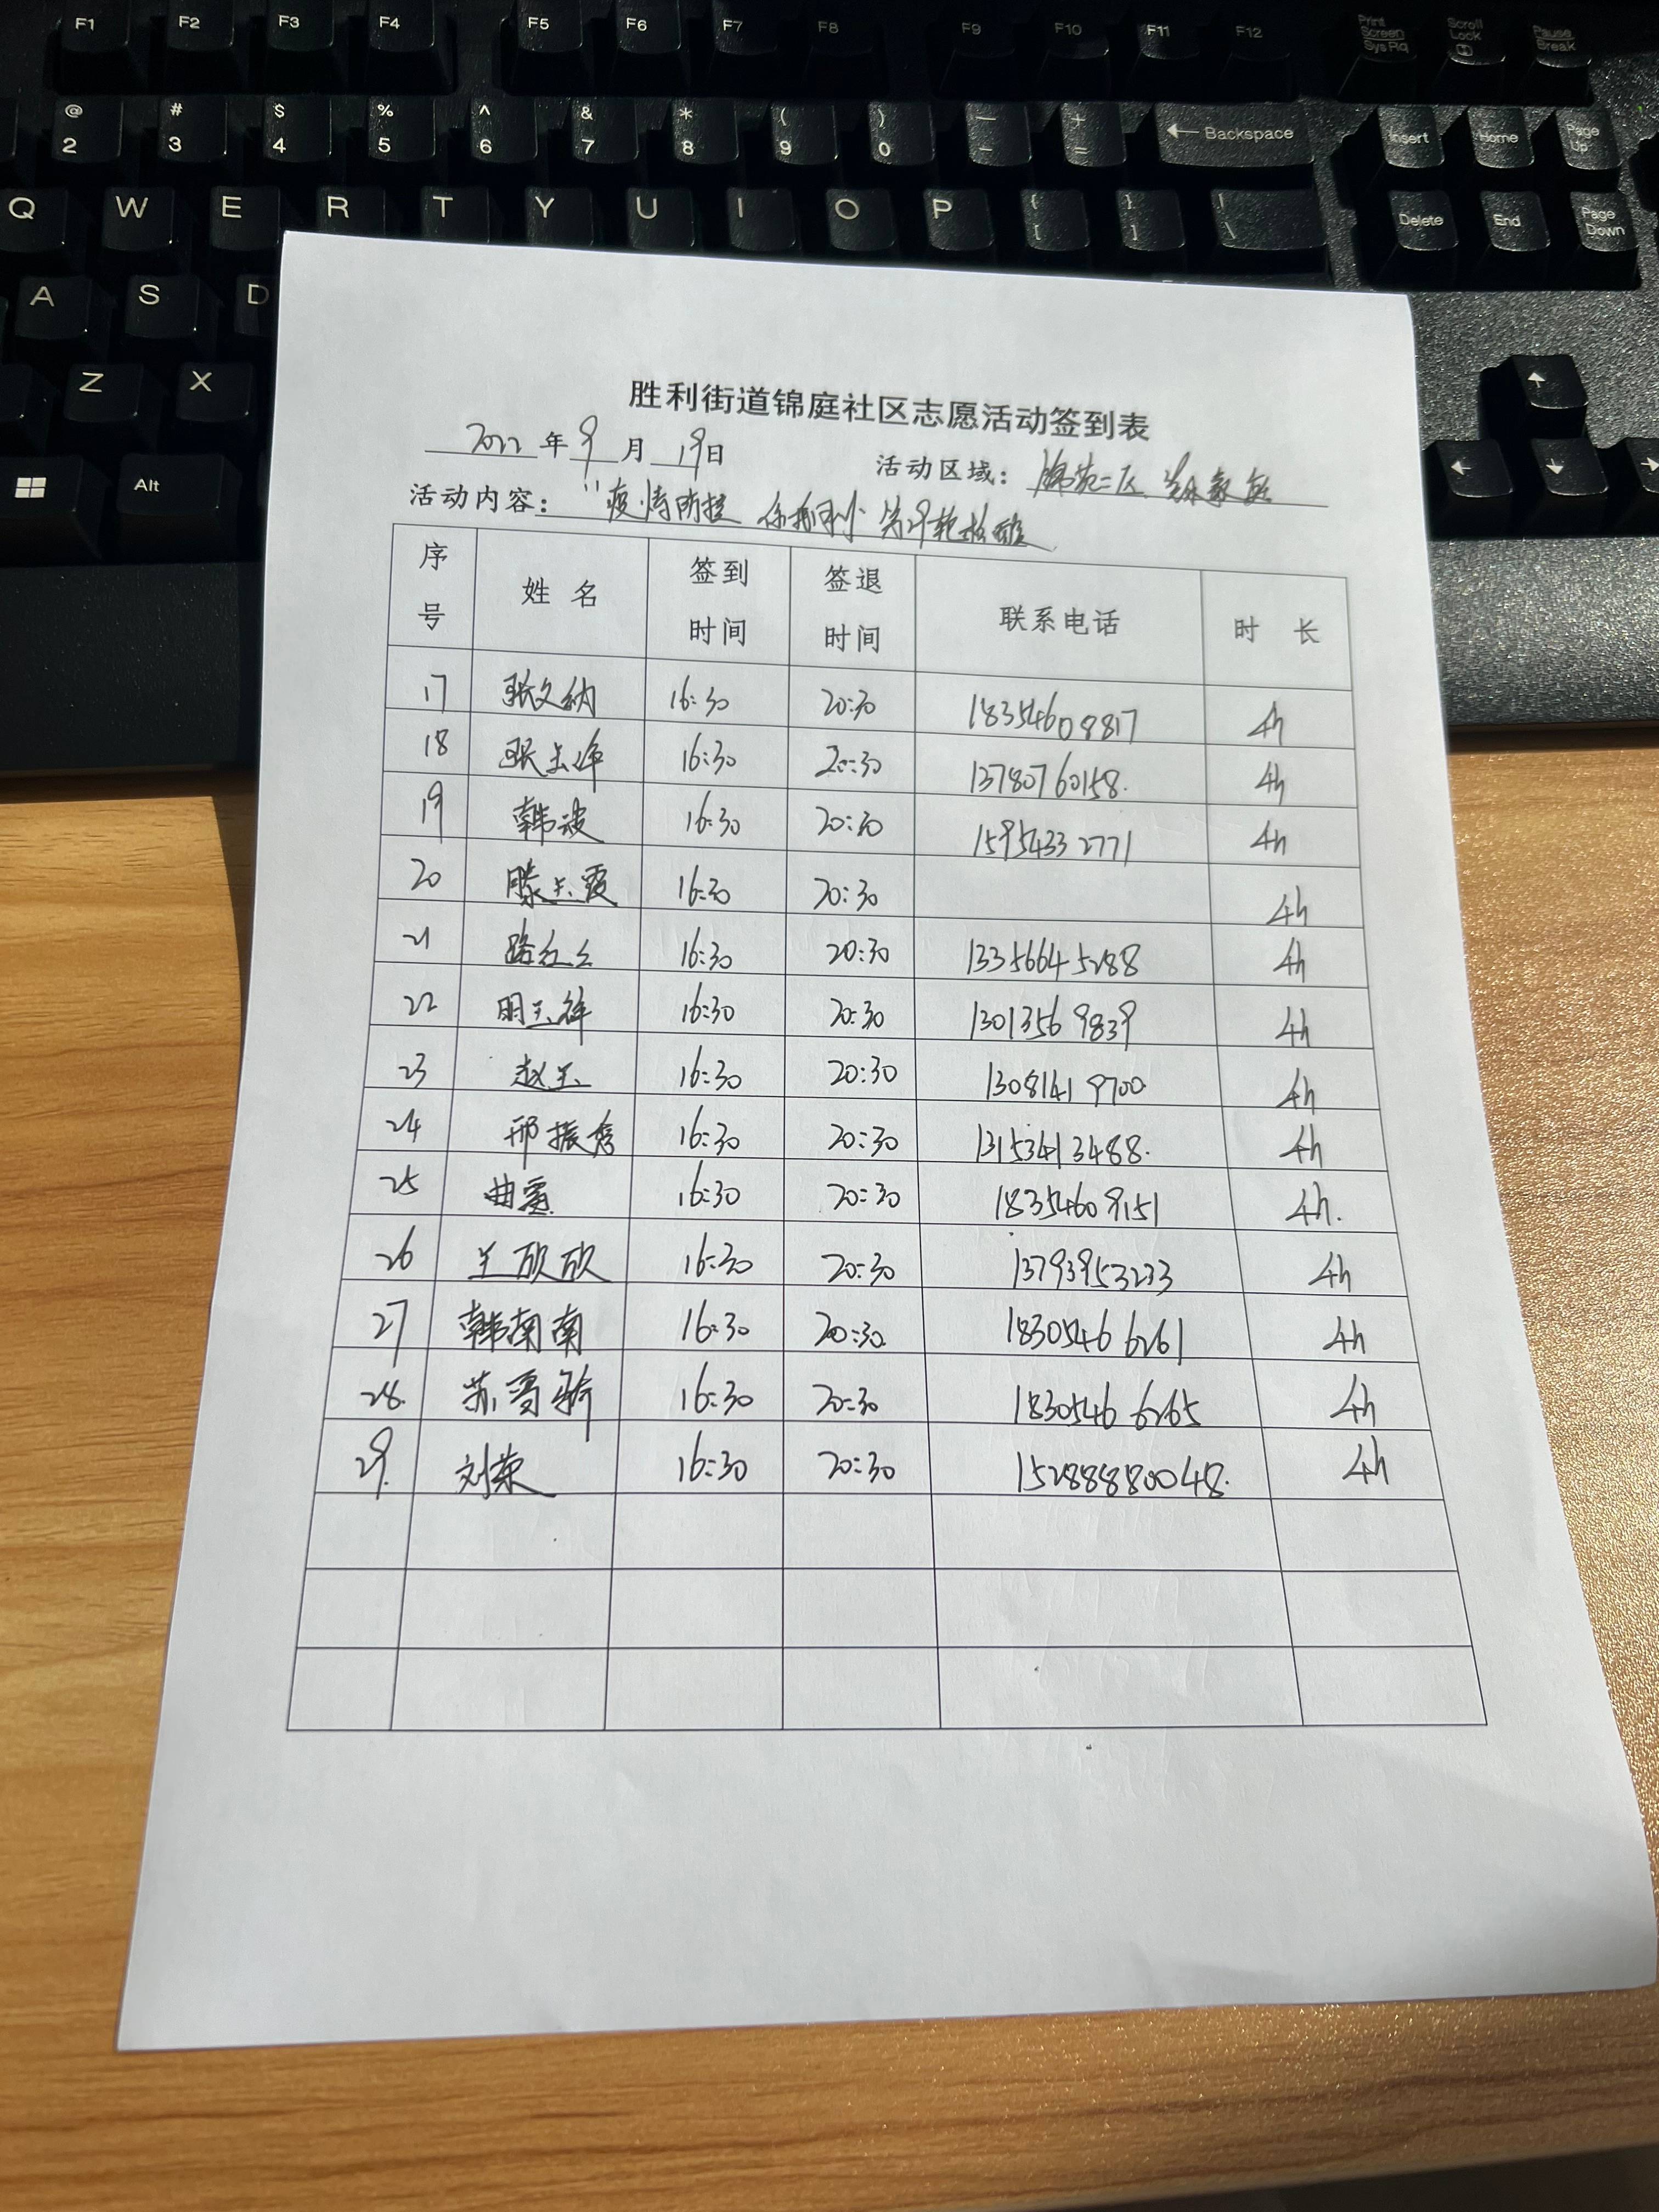 F1 F2 F3 F4 F5 F6 F7 F8 F9 F10 F11 F12 Print Screen SysRq Scroll Lock Pause Break
@ 2 # 3 $ 4 % 5 ^ 6 & 7 * 8 ( 9 ) 0 — - + = ← Backspace Insert Home Page Up
Q W E R T Y U I O P { [ } ] | \ Delete End Page Down
A S D
Z X
Alt
胜利街道锦庭社区志愿活动签到表
2022年9月19日 活动区域: 锦苑二区
活动内容: "疫情防控 你我同行" 第29轮核酸
序号 姓名 签到时间 签退时间 联系电话 时长
17 张文纳 16:30 20:30 18354608817 4h
18 张玉峰 16:30 20:30 13780760158. 4h
19 韩波 16:30 20:30 15954332771 4h
20 滕玉霞 16:30 20:30 4h
21 路红 16:30 20:30 13356645288 4h
22 明玉祥 16:30 20:30 13013569839 4h
23 赵玉 16:30 20:30 13081419700 4h
24 邢振秀 16:30 20:30 13153413488. 4h
25 曲 16:30 20:30 18354609151 4h.
26 王欣欣 16:30 20:30 13793953233 4h
27 韩南南 16:30 20:30 18305466261 4h
28. 苏 16:30 20:30 18305466265 4h
29. 刘荣 16:30 20:30 15288880048. 4h